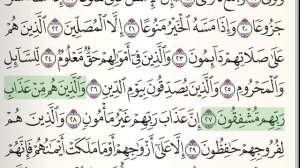 جَزُوعًا ٢٠ وَإِذَا مَسَّهُ الْخَيْرُ مَنُوعًا ٢١ إِلَّا الْمُصَلِّينَ ٢٢ الَّذِينَ هُمْ
عَلَىٰ صَلَاتِهِمْ دَائِمُونَ ٢٣ وَالَّذِينَ فِي أَمْوَالِهِمْ حَقٌّ مَعْلُومٌ ٢٤ لِلسَّائِلِ
وَالْمَحْرُومِ ٢٥ وَالَّذِينَ يُصَدِّقُونَ بِيَوْمِ الدِّينِ ٢٦ وَالَّذِينَ هُمْ مِنْ عَذَابِ
رَبِّهِمْ مُشْفِقُونَ ٢٧ إِنَّ عَذَابَ رَبِّهِمْ غَيْرُ مَأْمُونٍ ٢٨ وَالَّذِينَ هُمْ
لِفُرُوجِهِمْ حَافِظُونَ ٢٩ إِلَّا عَلَىٰ أَزْوَاجِهِمْ أَوْ مَا مَلَكَتْ أَيْمَانُهُمْ فَإِنَّهُمْ